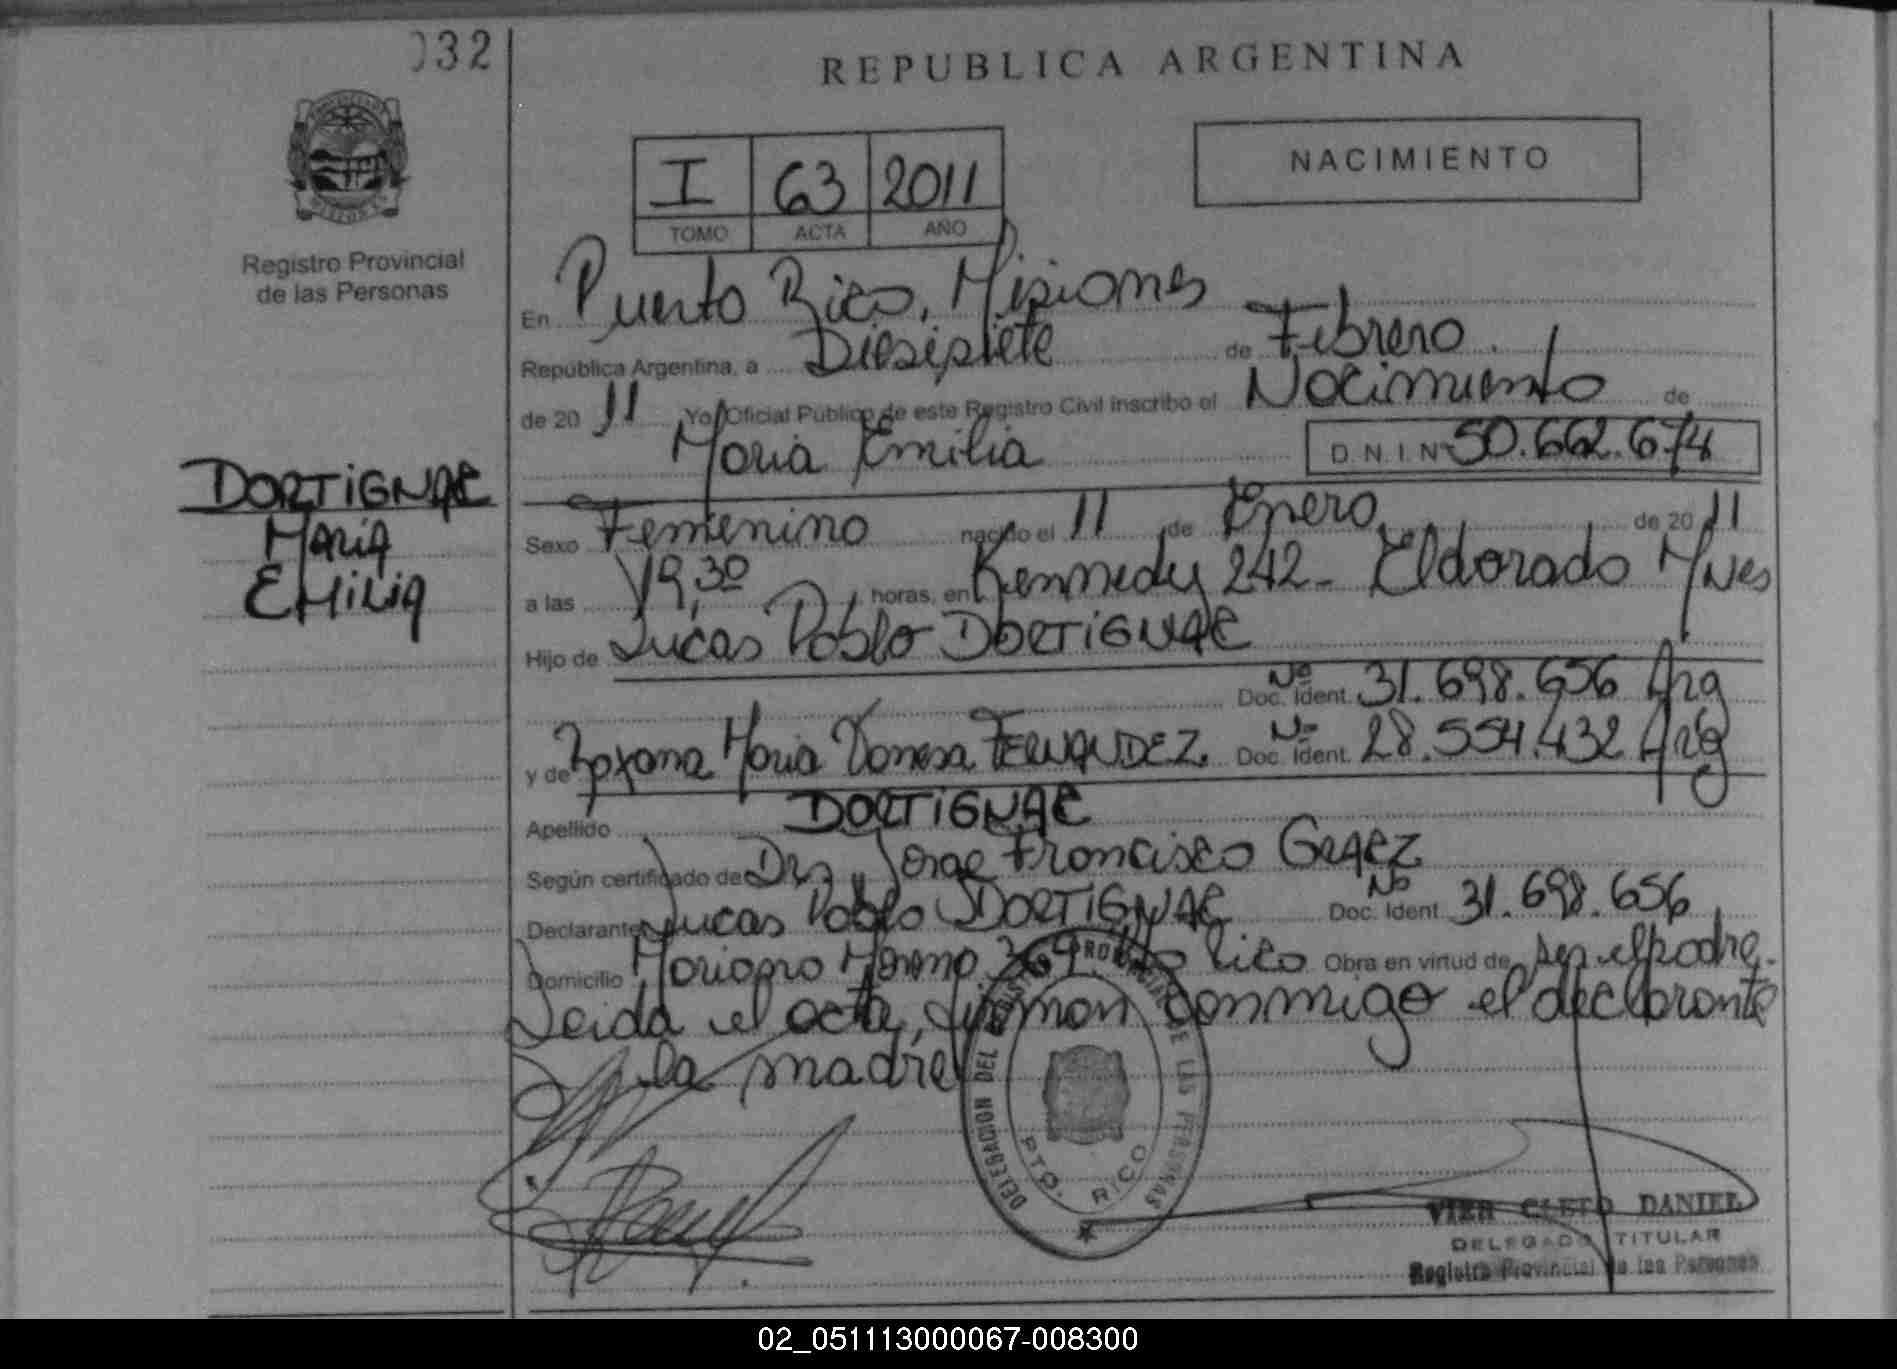 032
REPUBLICA ARGENTINA
NACIMIENTO
I 63 2011
TOMO ACTA AÑO
Registro Provincial
de las Personas
En Puerto Rico, Misiones
República Argentina, a Diesisiete de Febrero
de 20 11 Yo Oficial Público de este Registro Civil inscribo el Nacimiento de
Maria Emilia D.N.I.Nº 50.662.674
DORTIGNAC
Maria
Emilia
Sexo Femenino nacido el 11 de Enero de 20 11
a las 19,30 horas, en Kennedy 242 - Eldorado Mnes
Hijo de Lucas Pablo DORTIGNAC
Nº
Doc. Ident. 31.698.656 Arg
y de Roxana Maria Vanesa FERNANDEZ. Nº Doc. Ident. 28.554.432 Arg
Apellido DORTIGNAC
Según certificado de Jorge Francisco
Declarante Lucas Pablo DORTIGNAC Nº Doc. Ident. 31.698.656
Domicilio Mariano Moreno Rico Obra en virtud de ser el padre.
Leida el acta, firman conmigo el declarante
la madre
DELEGACION DEL REGISTRO PROVINCIAL DE LAS PERSONAS
PTO. RICO
VIER CLETO DANIEL
DELEGADO TITULAR
Registro Provincial de las Personas
02_051113000067-008300